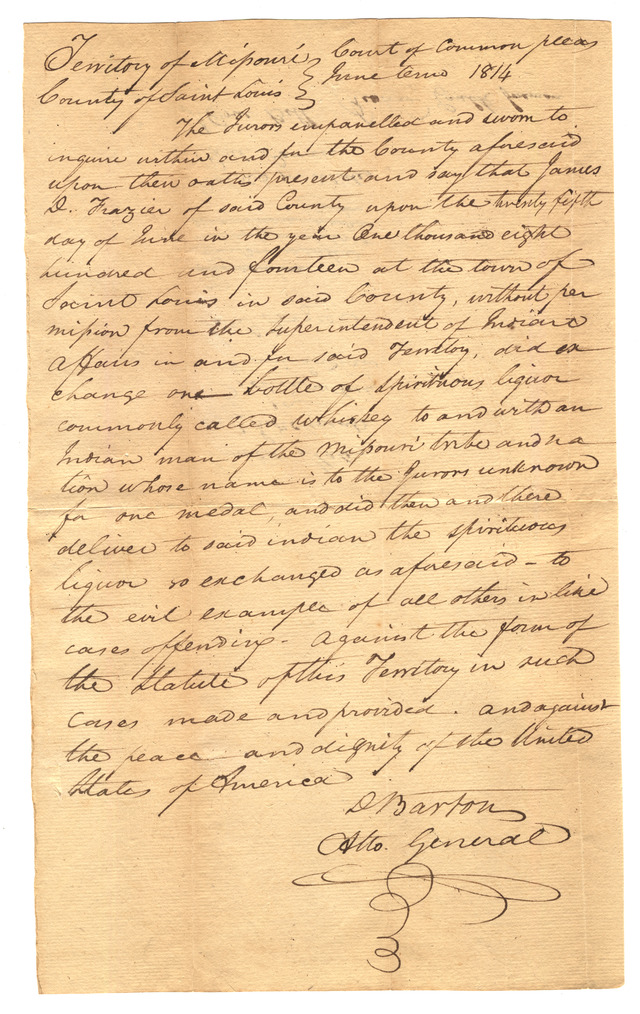 Territory of Missouri } Court of Common pleas
County of Saint Louis } June term 1814
The Jurors empanelled and sworn to
inquire within and for the County aforesaid
upon their oaths present and say that James
D. Frazier of said County upon the twenty fifth
day of June in the year One thousand eight
hundred and fourteen at the town of
Saint Louis in said County, without per
mission from the Superintendent of Indian
affairs in and for said Territory, did ex
change one bottle of spirituous liquor
commonly called whiskey to and with an
Indian man of the Missouri tribe and na
tion whose name is to the Jurors unknown
for one medal, and did then and there
deliver to said indian the spirituous
liquor so exchanged as aforesaid - to
the evil example of all others in like
cases offending - against the form of
the Statute of this Territory in such
cases made and provided. and against
the peace and dignity of the United
States of America
D Barton
Atto. General